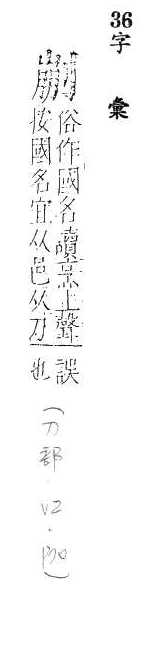 36字 彙
俗作國名讀 上聲誤
按國名宜从邑从刀也
(刀部.12.